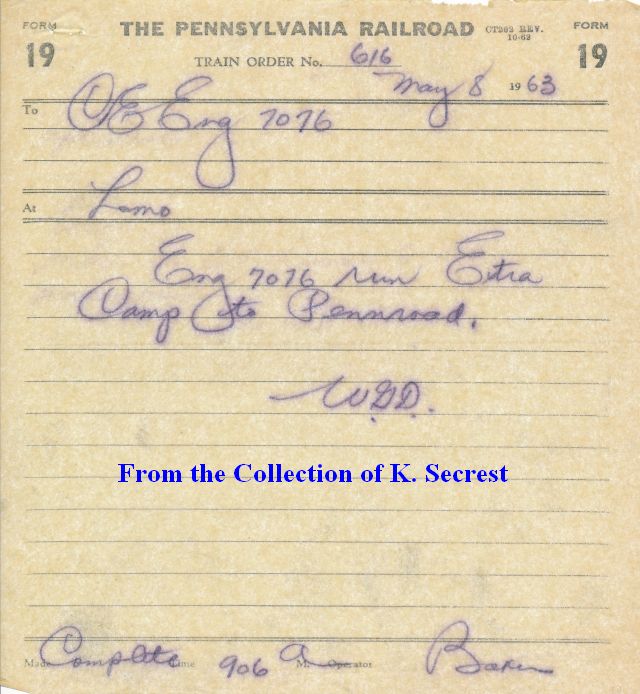 FORM 19 THE PENNSYLVANIA RAILROAD CT202 REV. 10-62 FORM 19
TRAIN ORDER No. 616
May 8 1963
To CE Eng 7076
At Lemo
Eng 7076 run Extra
Camp to Pennroad.
W.G.D.
From the Collection of K. Secrest
Made Complete Time 906 A M. Operator Baker